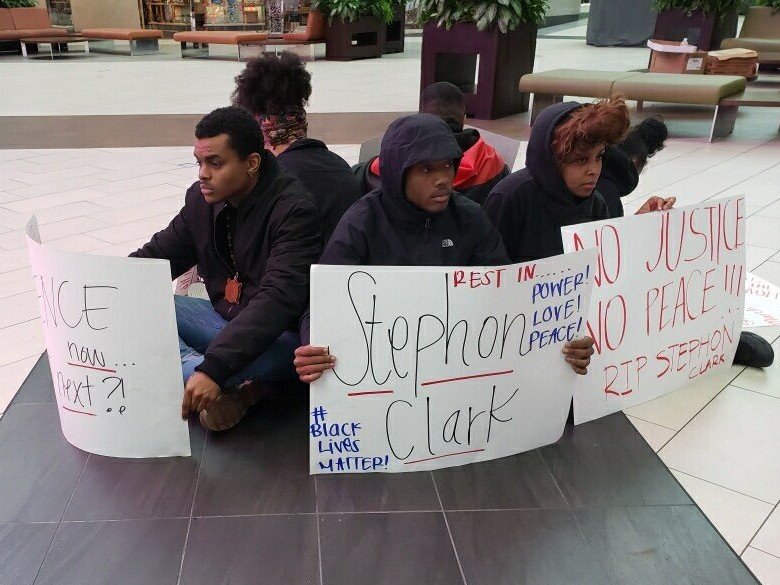 ENCE
now...
next?!
REST IN......
POWER!
LOVE!
PEACE!
Stephon
Clark
#
Black
Lives
MATTER!
NO JUSTICE
NO PEACE...!!!
RIP STEPHON
CLARK